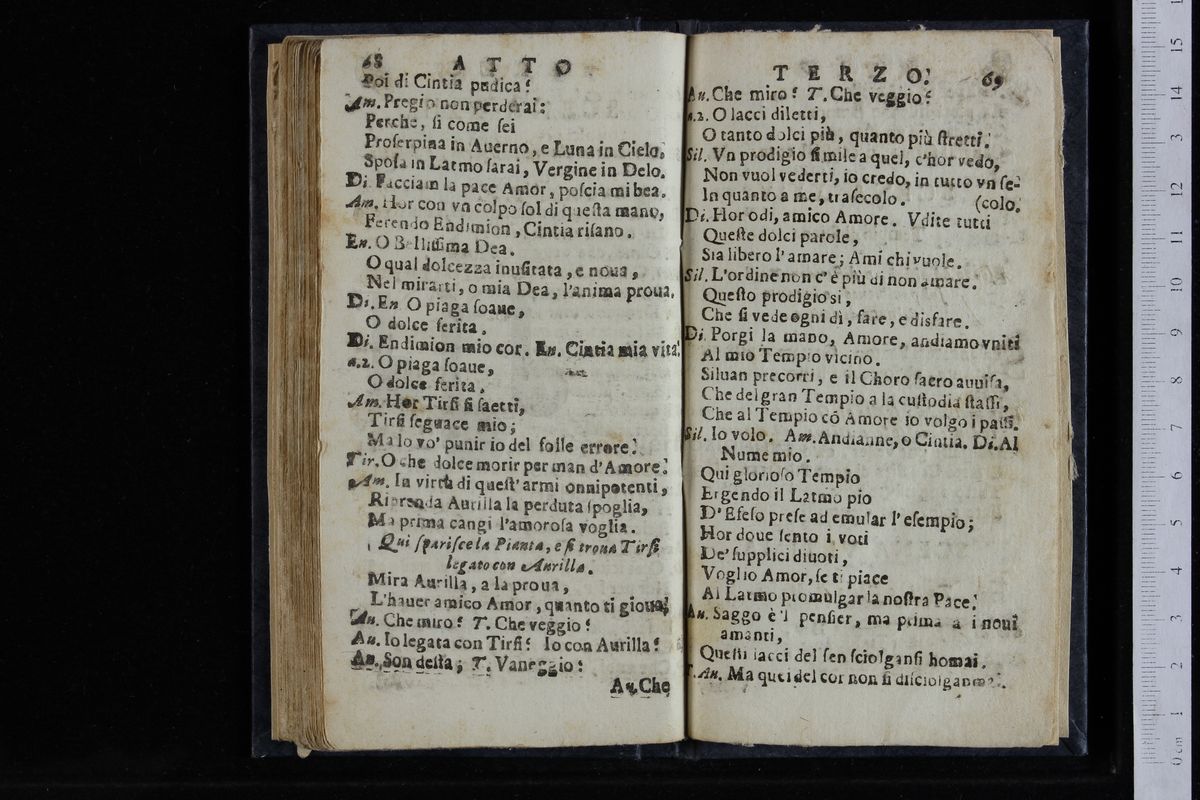 68 ATTO
Poi di Cintia pudica?
Am. Pregio non perderai:
Perche, ſi come ſei
Proſerpina in Auerno, e Luna in Cielo.
Spoſa in Latmo ſarai, Vergine in Delo.
Di. Facciam la pace Amor, poſcia mi bea.
Am. Hor con vn colpo ſol di queſta mano,
Ferendo Endimion, Cintia riſano.
En. O Belliſſima Dea.
O qual dolcezza inuſitata, e noua,
Nel mirarti, o mia Dea, l'anima proua.
Di. En. O piaga ſoaue,
O dolce ferita.
Di. Endimion mio cor. En. Cintia mia vita.
a.2. O piaga ſoaue,
O dolce ferita.
Am. Hor Tirſi ſi ſaetti,
Tirſi ſeguace mio;
Ma lo vo' punir io del folle errore.
Tir. O che dolce morir per man d'Amore.
Am. In virtù di queſt'armi onnipotenti,
Riprenda Aurilla la perduta ſpoglia,
Ma prima cangi l'amoroſa voglia.
Qui ſpariſce la Pianta, e ſi troua Tirſi
legato con Aurilla.
Mira Aurilla, a la proua,
L'hauer amico Amor, quanto ti gioua.
Au. Che miro? T. Che veggio?
Au. Io legata con Tirſi? Io con Aurilla?
Au. Son deſta; T. Vaneggio?
Au. Che
TERZO. 69
Au. Che miro? T. Che veggio?
a.2. O lacci diletti,
O tanto dolci più, quanto più ſtretti.
Sil. Vn prodigio ſimile a quel, c'hor vedo,
Non vuol vederti, io credo, in tutto vn ſe-
In quanto a me, traſecolo. (colo.
Di. Hor odi, amico Amore. Vdite tutti
Queſte dolci parole,
Sia libero l'amare; Ami chi vuole.
Sil. L'ordine non c'è più di non amare.
Queſto prodigio sì,
Che ſi vede ogni dì, fare, e disfare.
Di. Porgi la mano, Amore, andiamo vniti
Al mio Tempio vicino.
Siluan precorri, e il Choro ſacro auuiſa,
Che del gran Tempio a la cuſtodia ſtaſſi,
Che al Tempio cõ Amore io volgo i paſſi.
Sil. Io volo. Am. Andianne, o Cintia. Di. Al
Nume mio.
Qui glorioſo Tempio
Ergendo il Latmo pio
D'Efeſo preſe ad emular l'eſempio;
Hor doue ſento i voti
De' ſupplici diuoti,
Voglio Amor, ſe ti piace
Al Latmo promulgar la noſtra Pace.
Au. Saggo è 'l penſier, ma prima a i noui
amanti,
Queſti lacci del ſen ſciolganſi homai.
T. Au. Ma quei del cor non ſi diſciolgan mai.